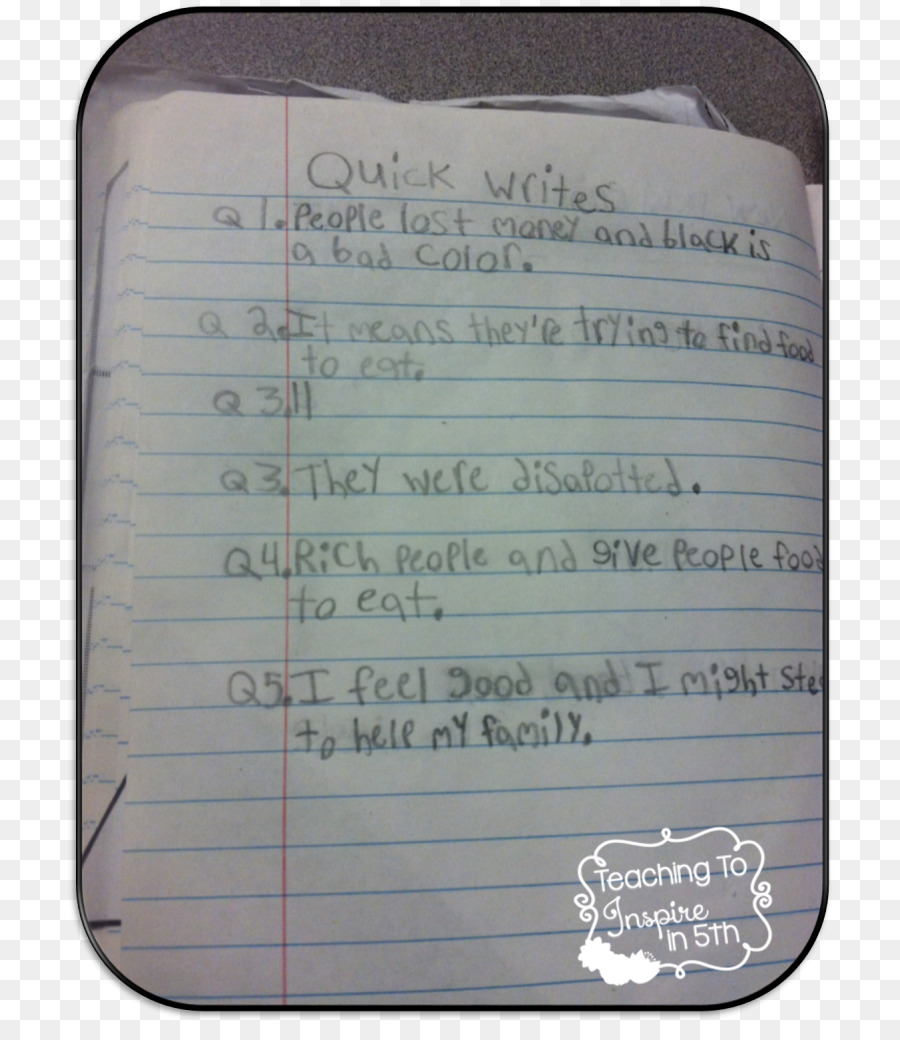 Quick Writes
Q 1. People lost money and black is
a bad color.
Q 2. It means they're trying to find food
to eat.
Q 3. 11
Q 3. They were disapotted.
Q4. Rich people and give people food
to eat.
Q5. I feel good and I might
to help my family.
Teaching To
Inspire
in 5th